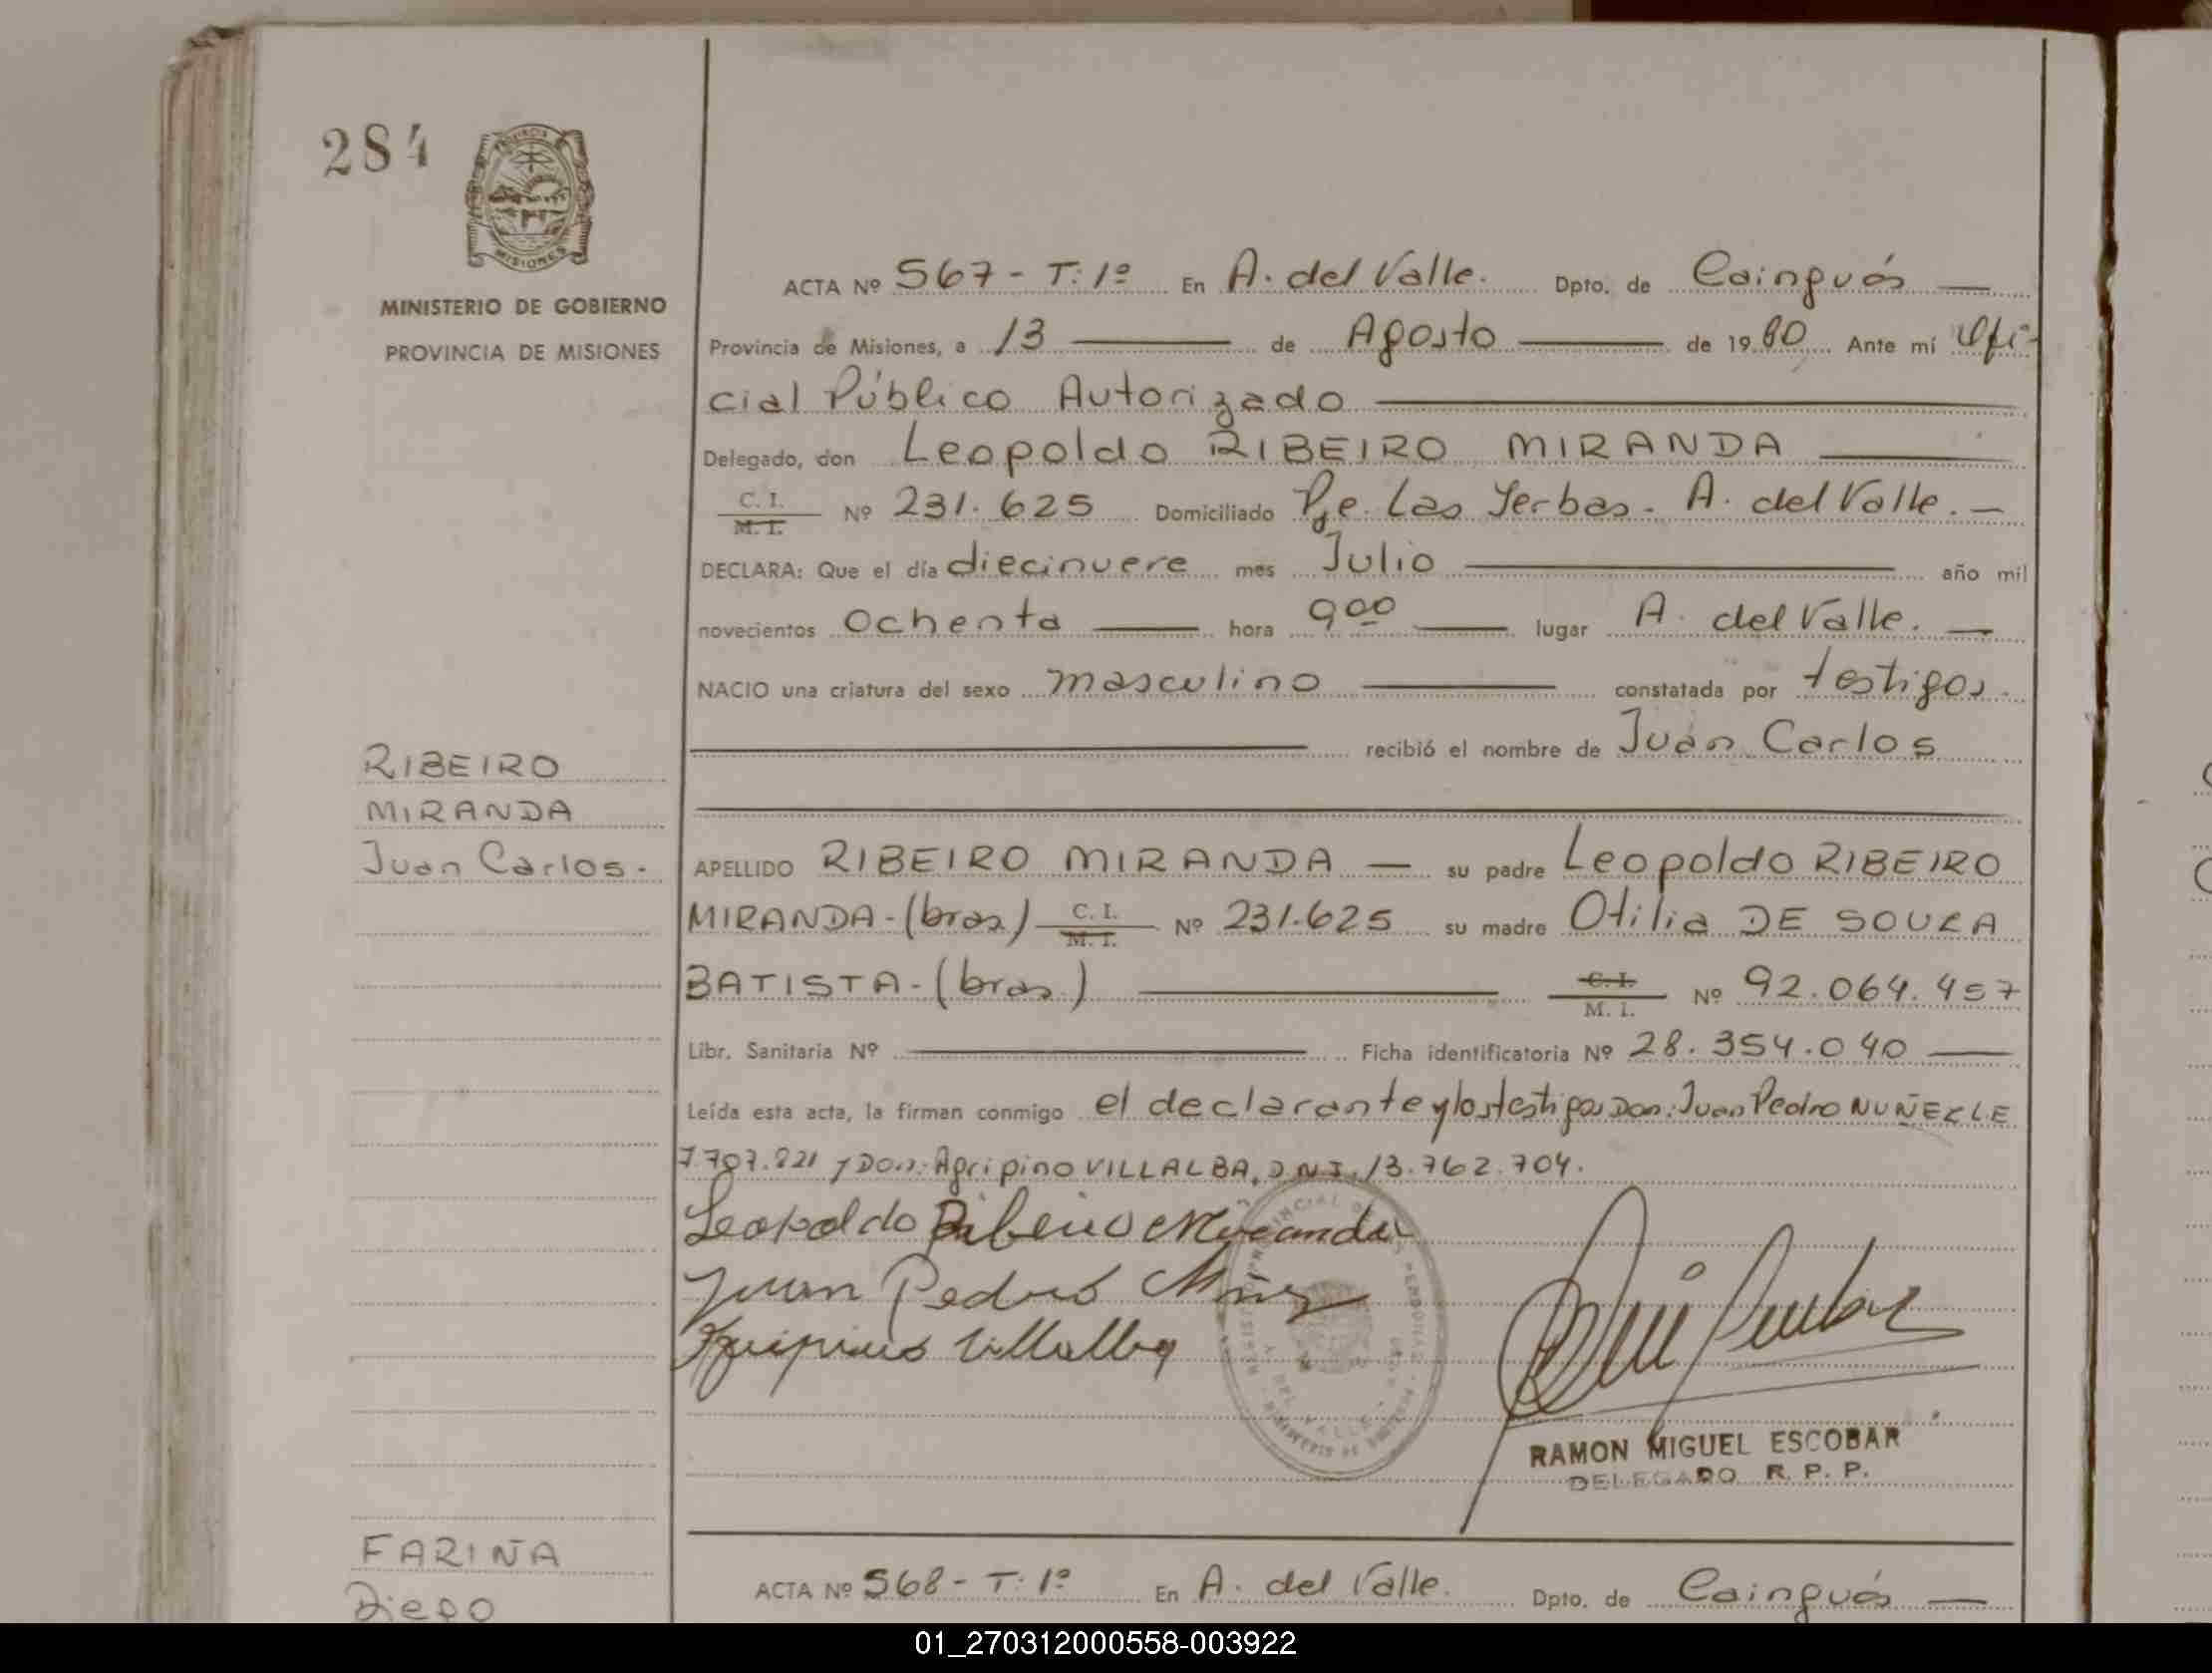 284
PROVINCIA
MISIONES
MINISTERIO DE GOBIERNO
PROVINCIA DE MISIONES
ACTA Nº 567 - T: 1º En A. del Valle. Dpto. de Cainguás —
Provincia de Misiones, a 13 — de Agosto — de 1980 Ante mí Ofi-
cial Público Autorizado —
Delegado, don Leopoldo RIBEIRO MIRANDA —
C. I.
M. I. Nº 231.625 Domiciliado Pje. Las Yerbas - A. del Valle. —
DECLARA: Que el día diecinueve mes Julio — año mil
novecientos Ochenta — hora 9oo — lugar A. del Valle. —
NACIO una criatura del sexo masculino — constatada por testigos.
— recibió el nombre de Juan Carlos
RIBEIRO
MIRANDA
Juan Carlos.
APELLIDO RIBEIRO MIRANDA — su padre Leopoldo RIBEIRO
MIRANDA - (bras) C. I. M. I. Nº 231.625 su madre Otilia DE SOUZA
BATISTA - (bras.) — C. I. M. I. Nº 92.064.457
Libr. Sanitaria Nº — Ficha identificatoria Nº 28.354.040 —
Leída esta acta, la firman conmigo el declarante y los testigos Don: Juan Pedro NUÑEZ L.E
7.707.821 y Don: Agripino VILLALBA, D.N.I. 13.762.704.
Leopoldo Ribeiro Miranda
Juan Pedro
Agripino Villalba
RAMON MIGUEL ESCOBAR
DELEGADO R. P. P.
FARIÑA
Diego
ACTA Nº 568 - T: 1º En A. del Valle. Dpto. de Cainguás —
01_270312000558-003922